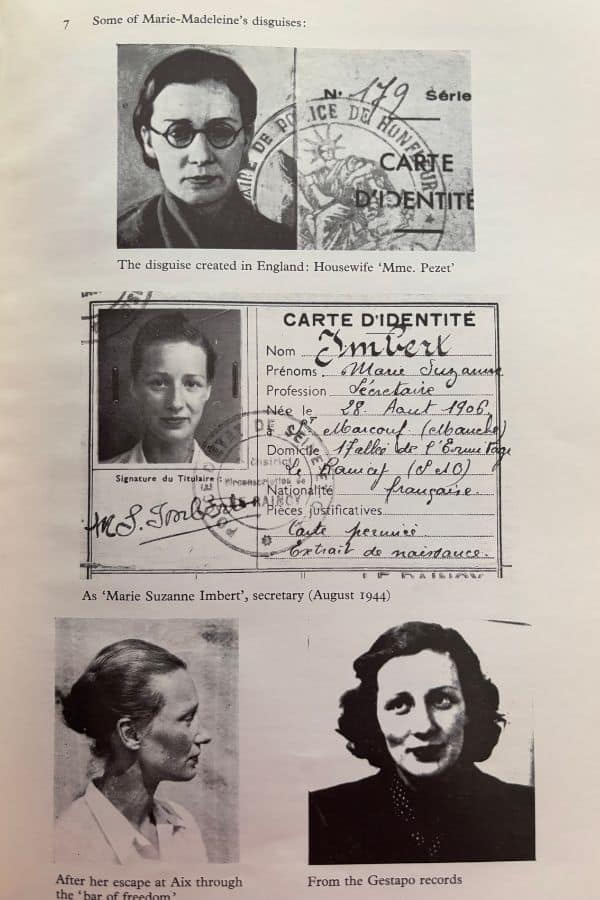 7 Some of Marie-Madeleine's disguises:
N° 179 Série
CARTE
D'IDENTITÉ
The disguise created in England: Housewife 'Mme. Pezet'
CARTE D'IDENTITÉ
Nom Imbert
Prénoms Marie Suzanne
Profession Sécretaire
Née le 28 Aout 1906
à St Marcouf (Manche)
Domicile 17 allée de l'Ermitage
Le Raincy (S&O)
Nationalité française.
Pièces justificatives
Carte
Extrait de naissance.
Signature du Titulaire:
M S. Imbert
As 'Marie Suzanne Imbert', secretary (August 1944)
After her escape at Aix through
the 'bar of freedom'
From the Gestapo records